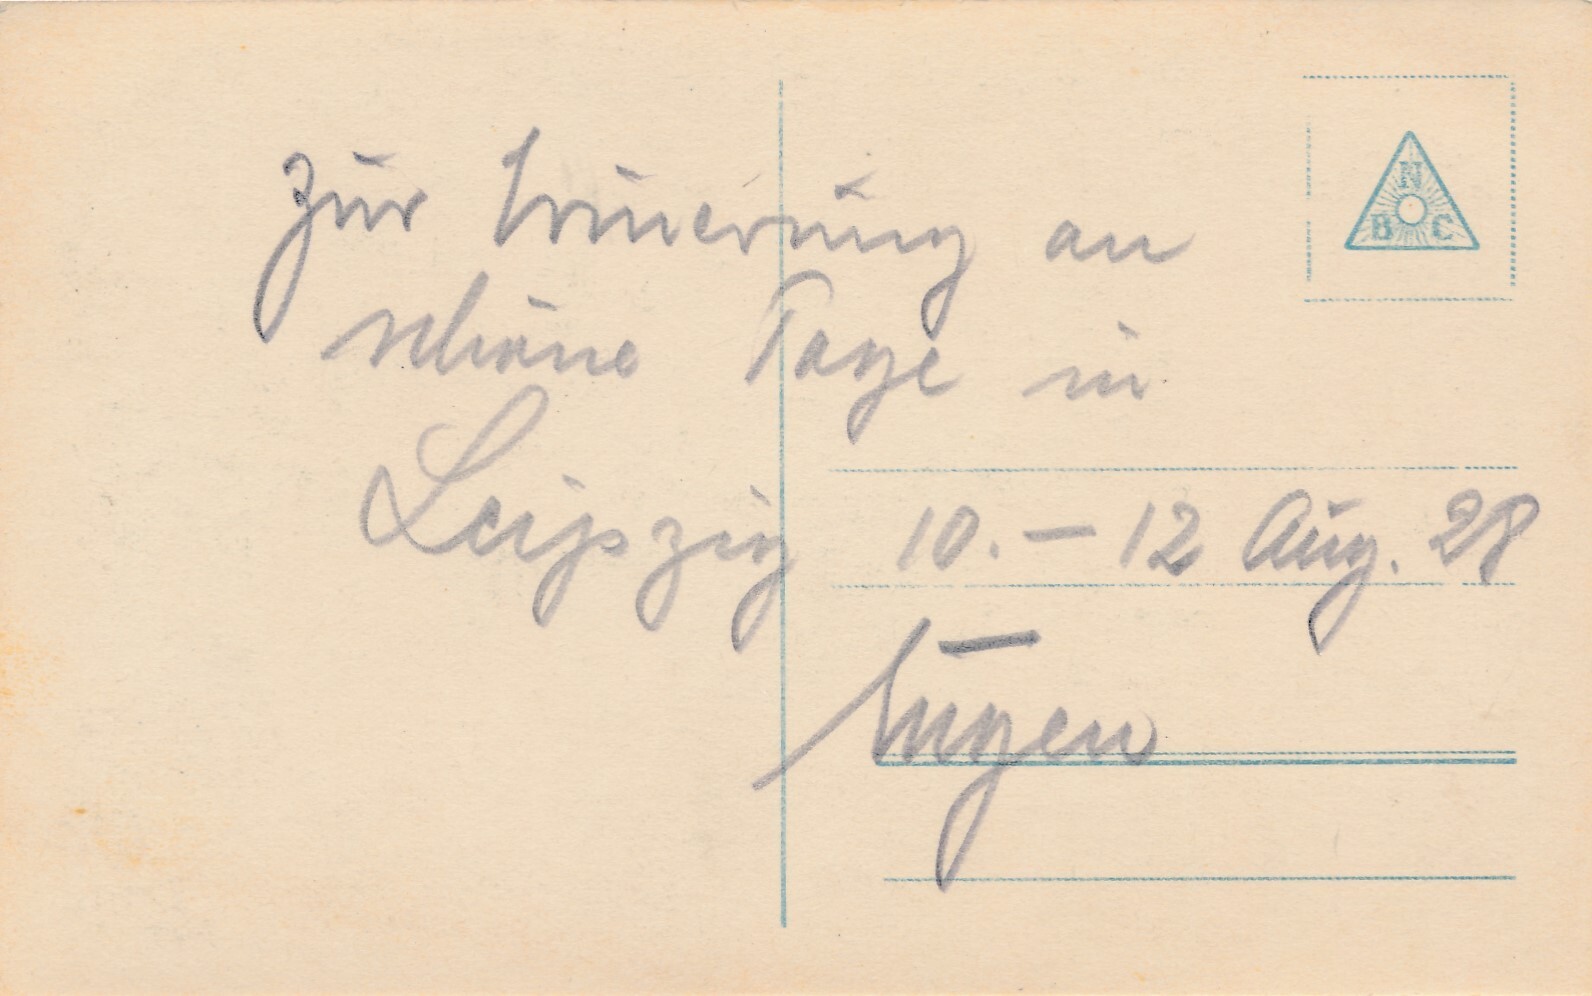 zur Erinnerung an
schöne Tage in
Leipzig 10. – 12 Aug. 28
Eugen
N
B C